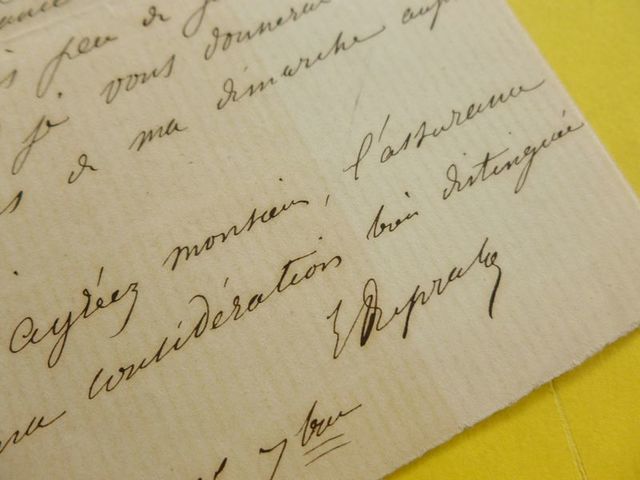 peu de
je vous donnerai
de ma dimarche
agréez monsieur, l'assurance
ma considération bien distinguée
7 bre